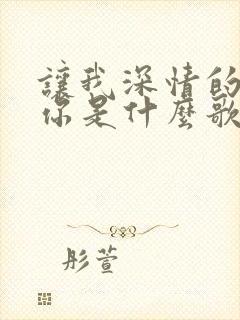 讓我深情的
你是什麼歌
彤萱